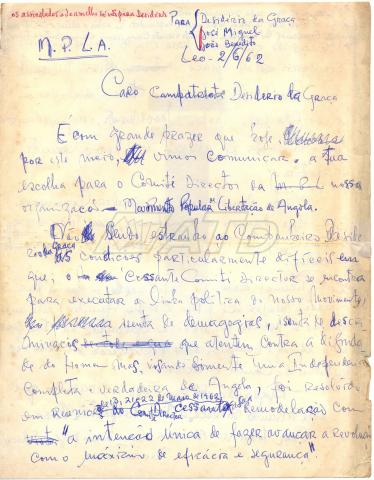 os assinalados a vermelho só para Desidério
PARA
Desidério da Graça
José Miguel
João Benedito
M.P.L.A.
Leo - 2/6/62
Caro Compatriota Desidério da Graça
É com grande prazer que hoje
por este meio, vimos comunicar a tua
escolha para o Comité Director da M P L nossa
organização - Movimento Popular Libertação de Angola.
Não sendo estranho ao Companheiro Desidé
rio da Graça as condições particularmente difíceis em
que, o Cessante Comité Director se encontra
para executar a linha política do nosso Movimento,
isenta de demagogias, isenta de discri
minações que atentem contra a dignida
de do homem mas, visando somente uma Independência
completa e verdadeira de Angola, foi resolvido
de 13, 21 e 22 de Maio de 1962
em Reunião do Comité Director cessante, remodelação com
"a intenção única de fazer avançar a revolução
com o máximo de eficácia e segurança".